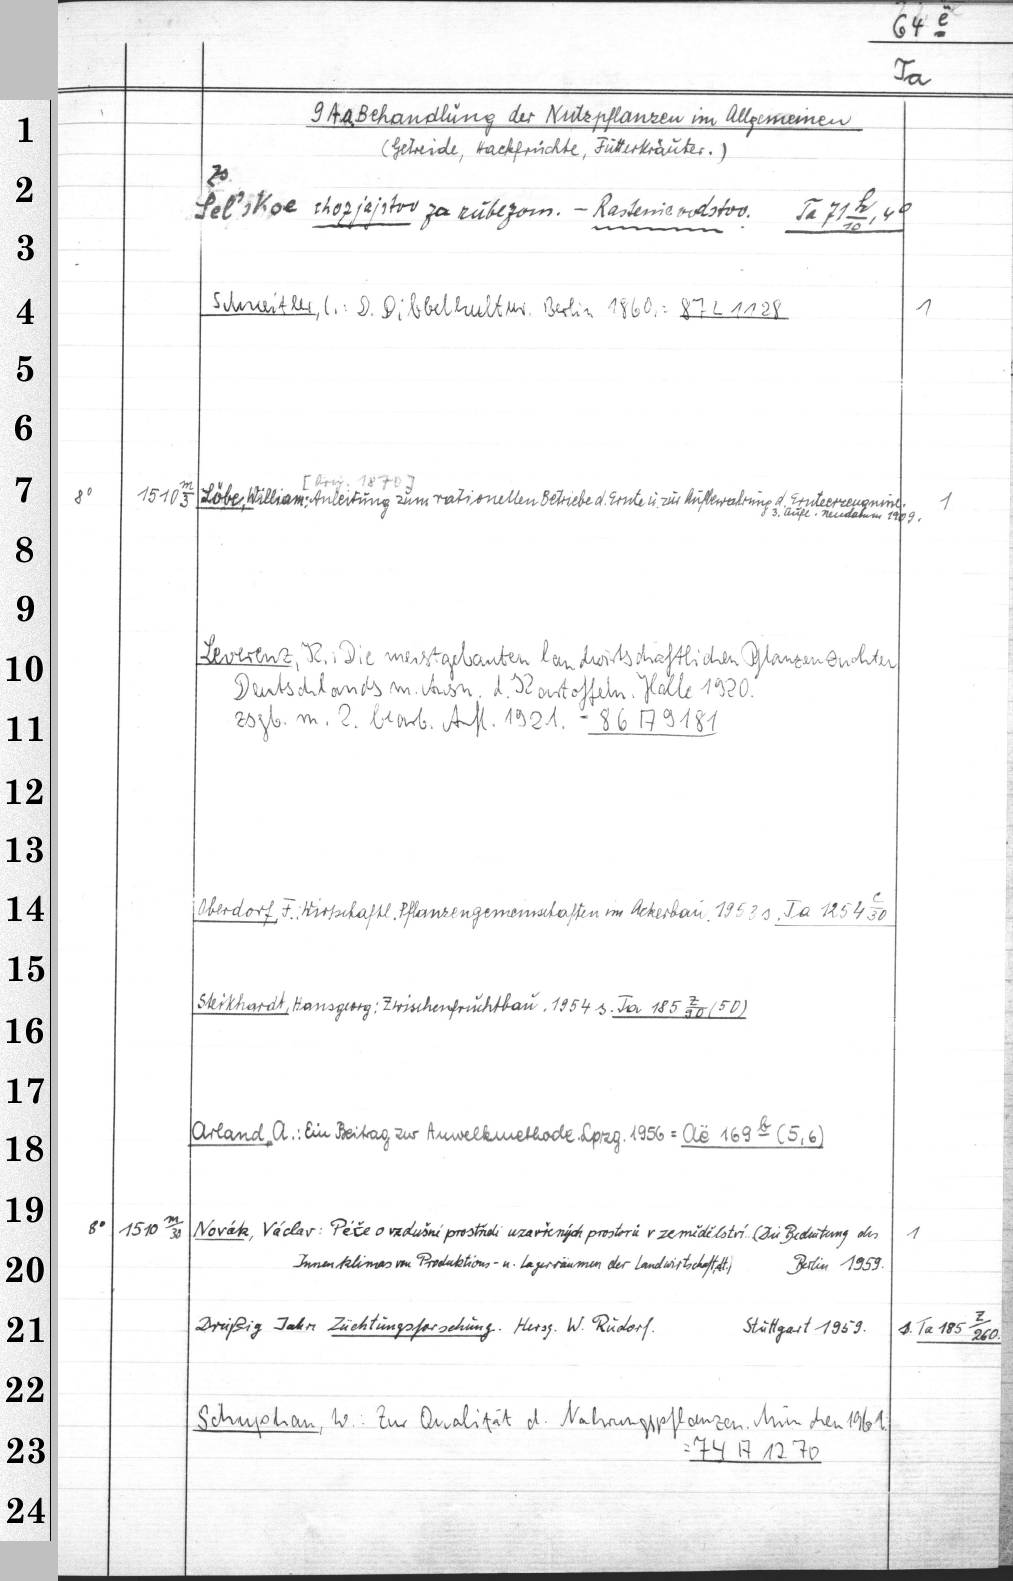 64 ë
Ta
1
9 A a. Behandlung der Nutzpflanzen im Allgemeinen
(Getreide, Hackfrüchte, Futterkräuter.)
2
Zs
Sel'skoe chozjajstvo za rubežom. – Rastenievodstvo. Ta 71 h/10, 4°
3
4
Schneitler, C.: D. Dibbelkultur. Berlin 1860.= 87 L 1128 1
5
6
7
[Orig. 1870]
8° 1510 m/3 Löbe, William: Anleitung zum rationellen Betriebe d. Ernte u. zur Aufbewahrung d. Ernteerzeugnisse. 1
3. Aufl. Neudamm 1909.
8
9
10
Leverenz, K.: Die meistgebauten landwirtschaftlichen Pflanzenzuchten
Deutschlands m. Ausn. d. Kartoffeln. Halle 1920.
11
zsgb. m. 2. bearb. Aufl. 1921. - 86 A 9181
12
13
14
Oberdorf, F.: Wirtschaftl. Pflanzengemeinschaften im Ackerbau. 1953 s. Ta 1254 c/30
15
16
Steikhardt, Hansgeorg: Zwischenfruchtbau. 1954 s. Ta 185 z/90 (50)
17
18
Arland, A.: Ein Beitrag zur Anwelkmethode. Lpzg. 1956 = Aë 169 b (5,6)
19
8° 1510 m/30 Novák, Václav: Péče o vzdušné prostředí uzavřených prostorů v zemědělství. (Die Bedeutung des 1
20
Innenklimas von Produktions- u. Lagerräumen der Landwirtschaft, dt.) Berlin 1959.
21
Dreißig Jahre Züchtungsforschung. Hersg. W. Rudorf. Stuttgart 1959. s. Ta 185 z/260.
22
Schuphan, W.: Zur Qualität d. Nahrungspflanzen. München 1961.
23
= 74 A 1270
24